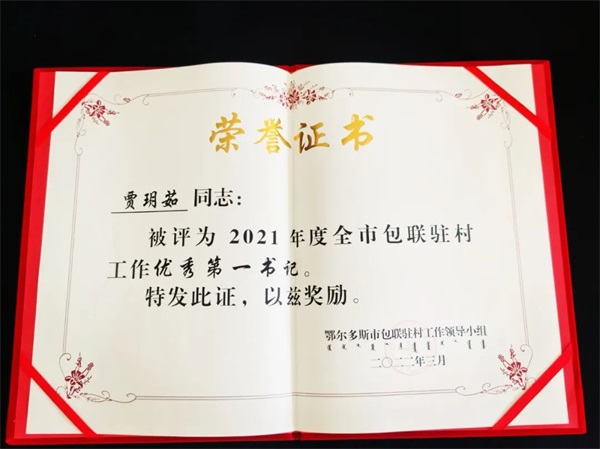 荣誉证书
贾玥茹 同志：
被评为 2021 年度全市包联驻村
工作优秀第一书记。
特发此证，以兹奖励。
鄂尔多斯市包联驻村工作领导小组
二〇二二年三月